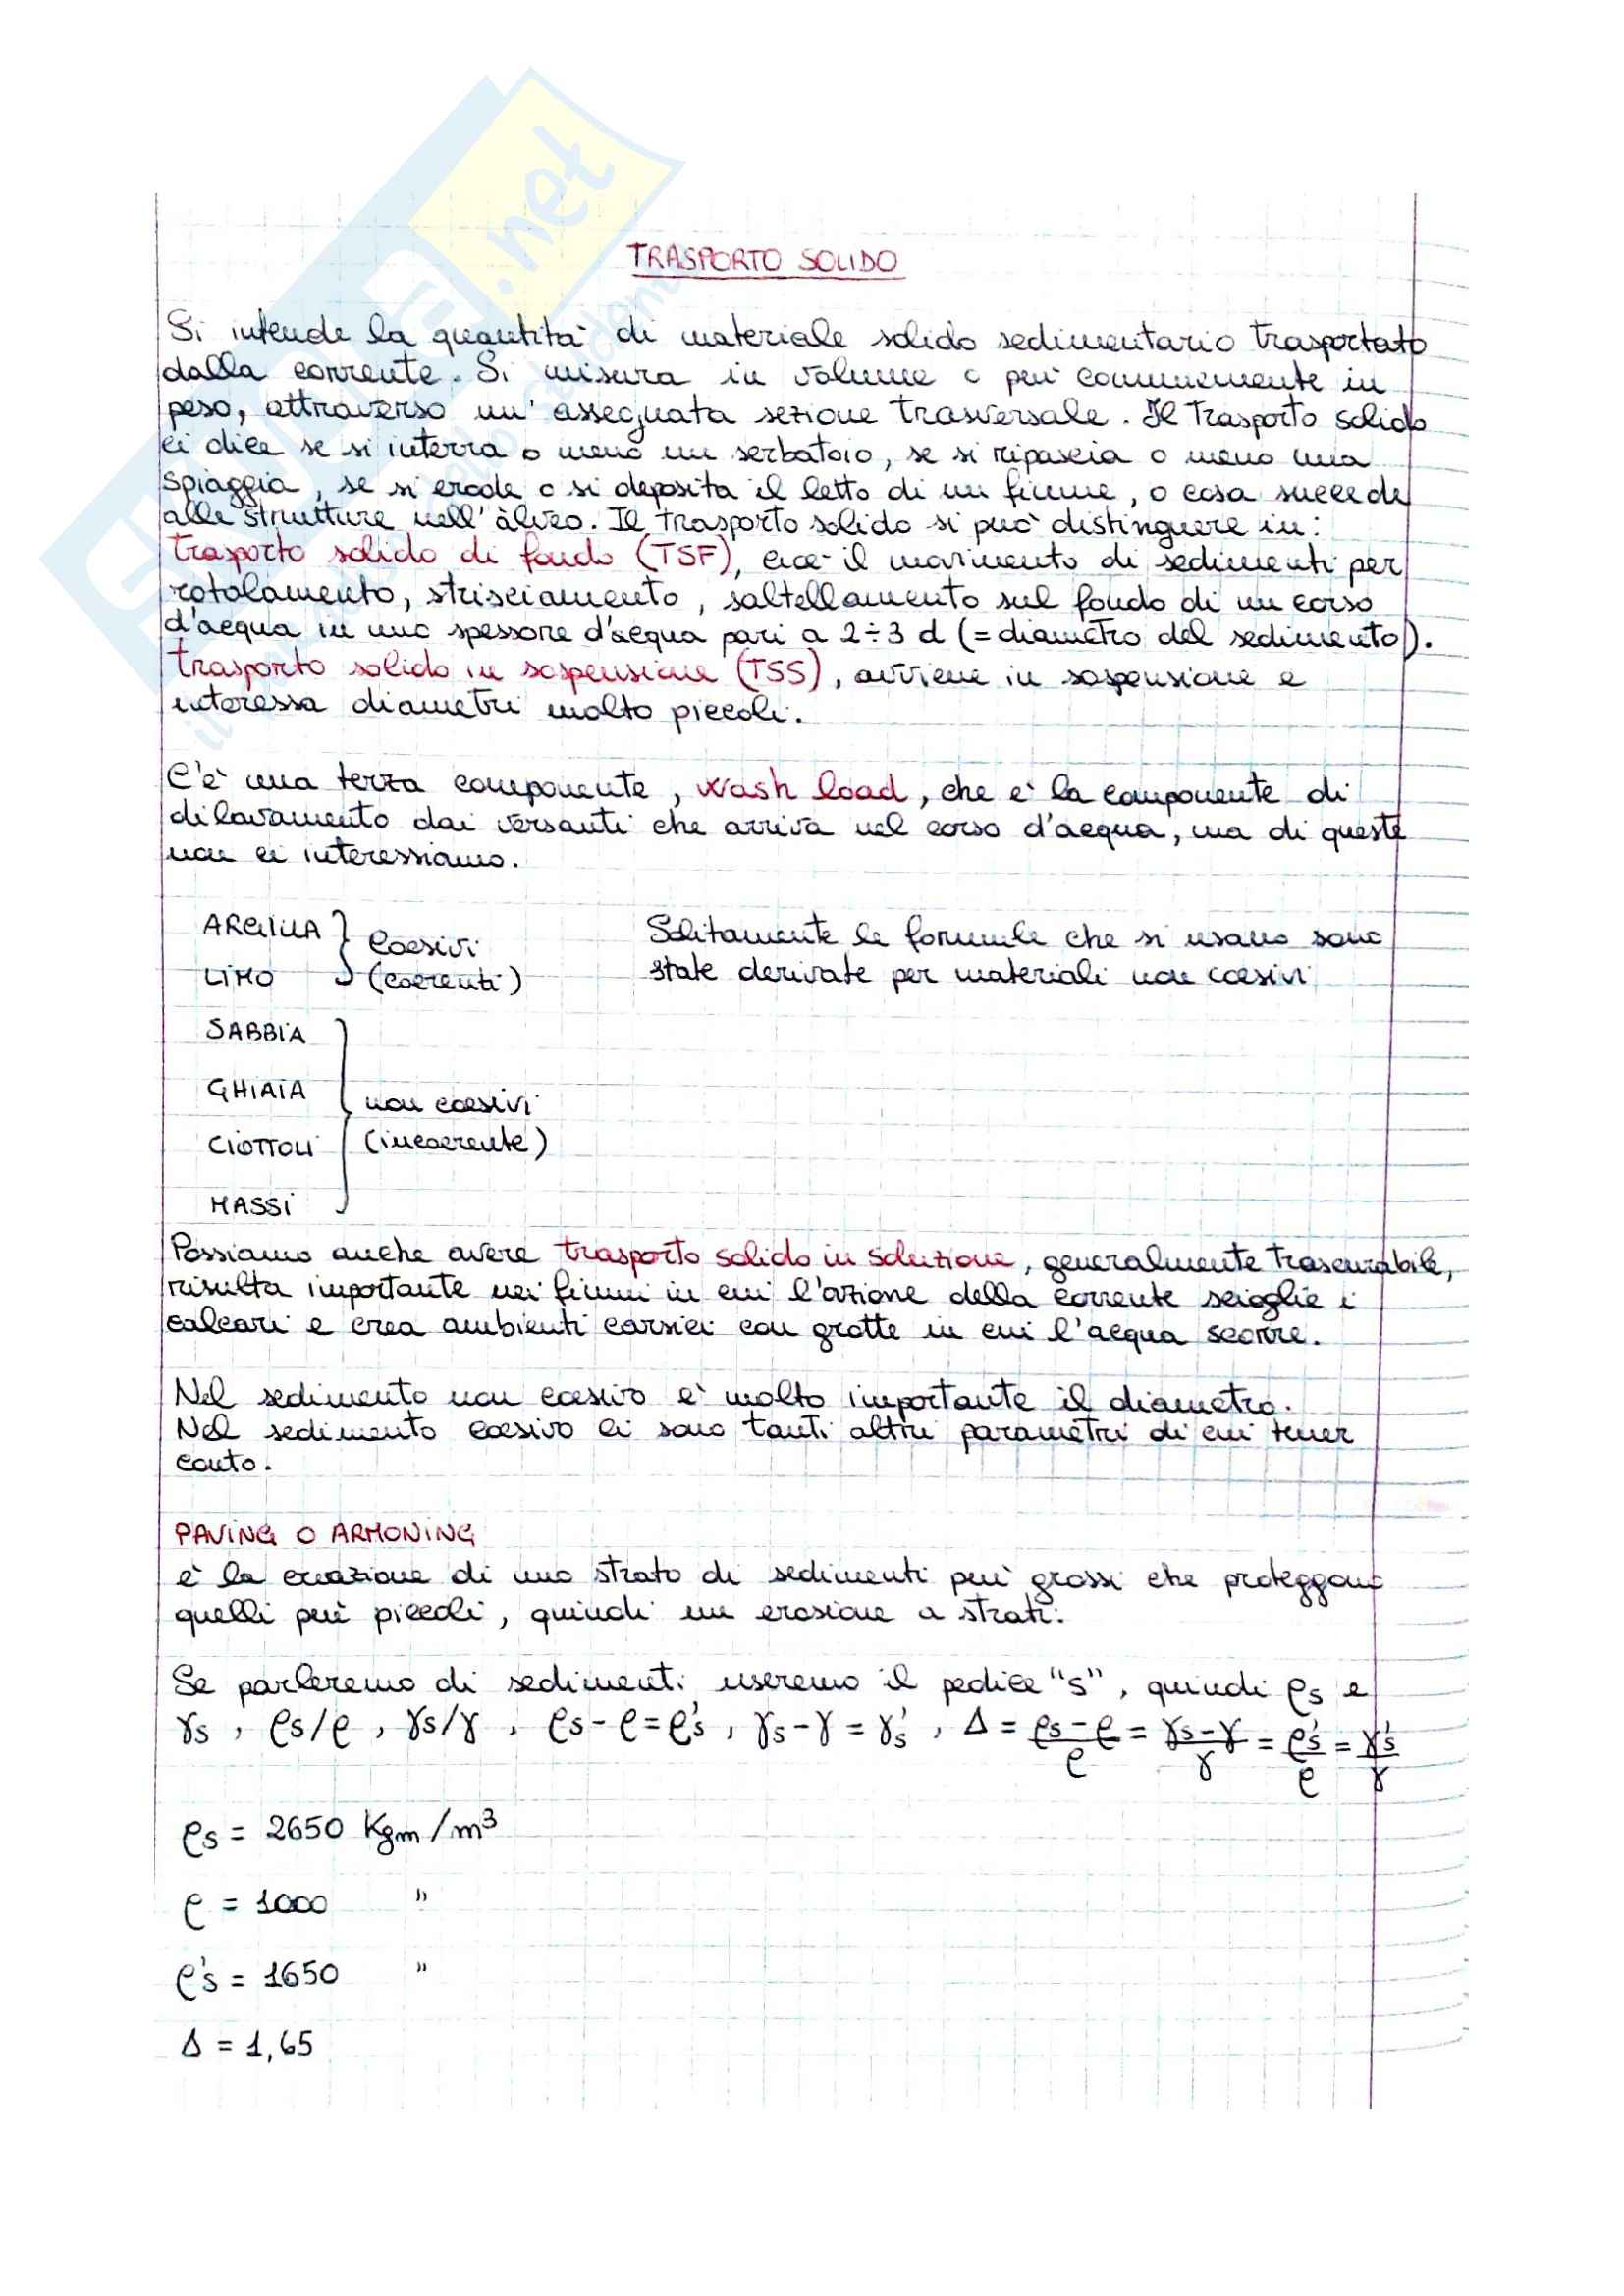 TRASPORTO SOLIDO
Si intende la quantità di materiale solido sedimentario trasportato
dalla corrente. Si misura in volume o più comunemente in
peso, attraverso un' assegnata sezione trasversale. Il trasporto solido
ci dice se si interra o meno un serbatoio, se si ripascia o meno una
spiaggia, se si erode o si deposita il letto di un fiume, o cosa succede
alle strutture nell'àlveo. Il trasporto solido si può distinguere in:
trasporto solido di fondo (TSF), cioè il movimento di sedimenti per
rotolamento, strisciamento, saltellamento sul fondo di un corso
d'acqua in uno spessore d'acqua pari a 2÷3 d (= diametro del sedimento).
trasporto solido in sospensione (TSS), avviene in sospensione e
interessa diametri molto piccoli.
C'è una terza componente, wash load, che è la componente di
dilavamento dai versanti che arriva nel corso d'acqua, ma di queste
non ci interessiamo.
ARGILLA
LIMO
coesivi
(coerenti)
Solitamente le formule che si usano sono
state derivate per materiali non coesivi
SABBIA
GHIAIA
CIOTTOLI
MASSI
non coesivi
(incoerente)
Possiamo anche avere trasporto solido in soluzione, generalmente trascurabile,
risulta importante nei fiumi in cui l'azione della corrente scioglie i
calcari e crea ambienti carsici con grotte in cui l'acqua scorre.
Nel sedimento non coesivo è molto importante il diametro.
Nel sedimento coesivo ci sono tanti altri parametri di cui tener
conto.
PAVING O ARMONING
è la creazione di uno strato di sedimenti più grossi che proteggono
quelli più piccoli, quindi un erosione a strati.
Se parleremo di sedimenti useremo il pedice "s", quindi ρs e
γs, ρs/ρ, γs/γ, ρs-ρ=ρ's, γs-γ=γs', Δ = (ρs-ρ)/ρ = (γs-γ)/γ = ρs'/ρ = γs'/γ
ρs = 2650 Kgm/m³
ρ = 1000 "
ρ's = 1650 "
Δ = 1,65
.net